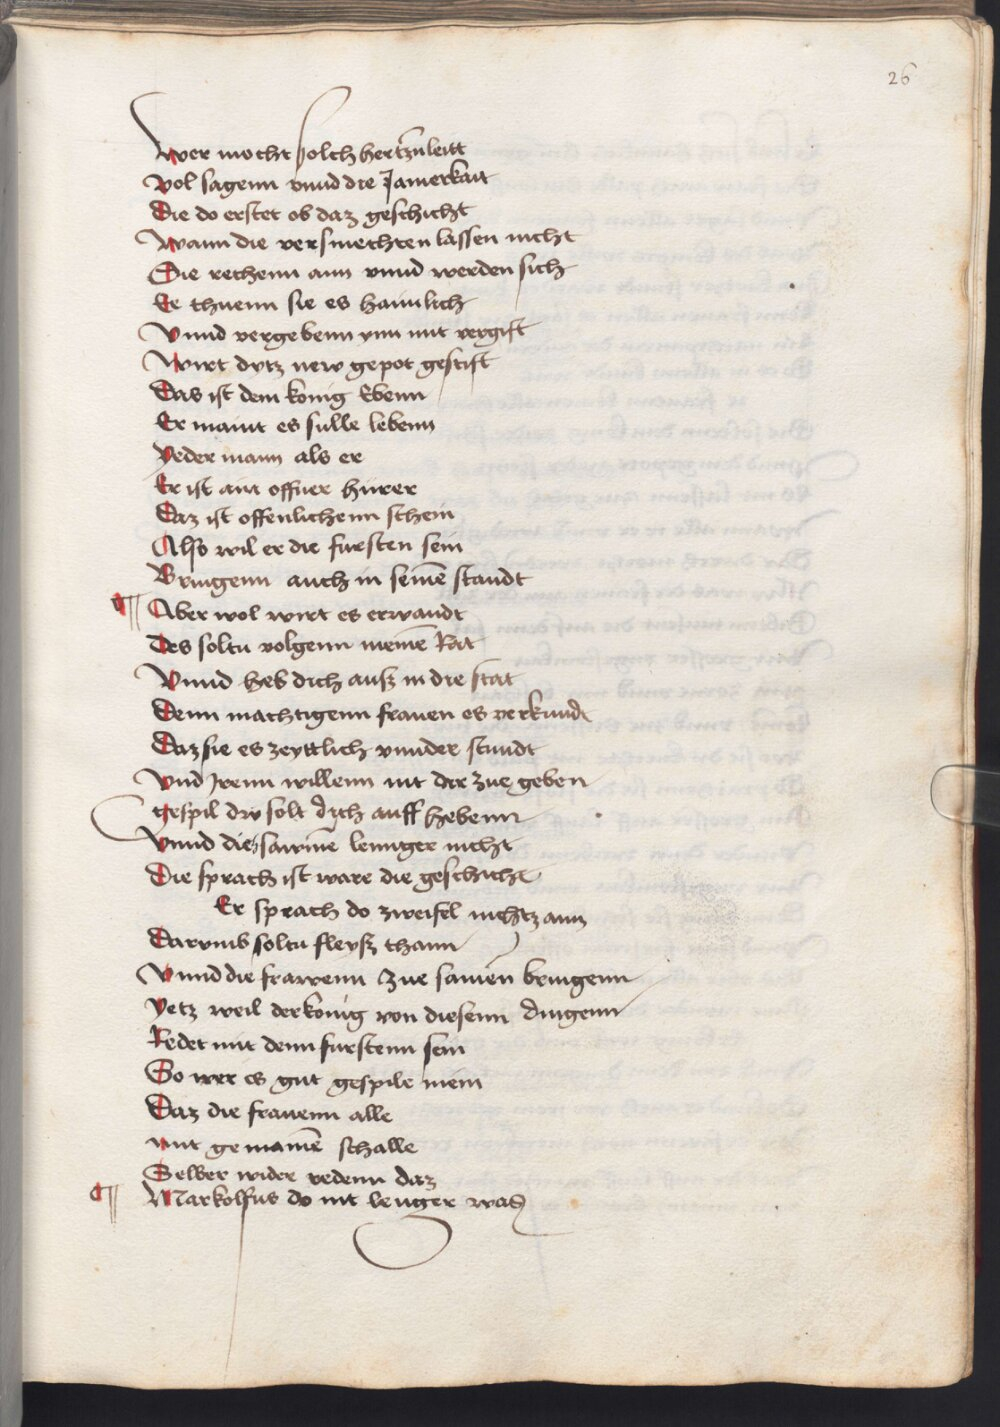 26
Wer mocht solch hertzn leitt
vol sagenn vnnd die Jamerkait
Die do erstet ob daz geschicht
Wann die versmechten lassen nicht
Sie rechenn ann vnnd werden sich
Ee thuenn sie es haimlich
Vnnd vergebenn ym mit vergift
Wirt dytz new gepot gestift
Das ist dem konig Ebenn
Er maint es sulle lebenn
Yeder mann als er
Er ist ain offner hurer
Daz ist offenlichenn schein
Also wil er die fursten sein
Bringenn auch in seinē standt
Aber wol wirt es erwandt
Des soltu volgenn meinē Rat
Vnnd heb dich ausz in die stat
Denn machtigenn frauen es verkund
Daz sie es zeyttlich vnnder stundt
Vnd Jrenn willenn nit dar zue geben
gespil dw solt dich auff hebenn
Vnnd die sawme lennger nicht
Die sprach ist ware die geschicht
Er sprach do zweifel nichtz ann
Darvmb soltu fleysz thann
Vnnd die frawenn zue samen bringenn
Yetz weil der konig von diesenn dingenn
Redet mit denn furstenn sein
So wer es gut gespile mein
Daz die frauenn alle
mit gemainē schalle
Selber wider redenn daz
Markolfus do nit lenger was